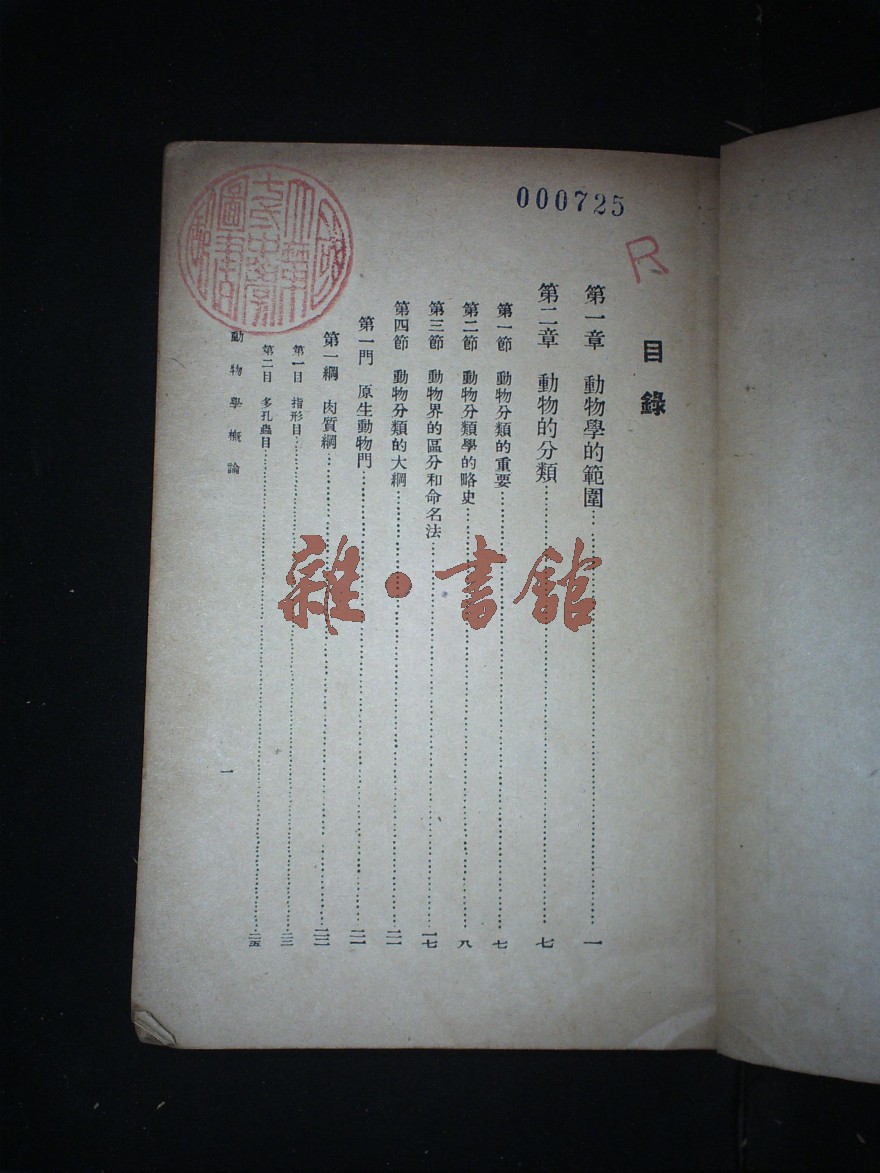 000725
R
目錄
第一章 動物學的範圍……一
第二章 動物的分類……七
第一節 動物分類的重要……七
第二節 動物分類學的略史……八
第三節 動物界的區分和命名法……一七
第四節 動物分類的大綱……二一
第一門 原生動物門……二一
第一綱 肉質綱……二二
第一目 指形目……二三
第二目 多孔蟲目……二五
動物學概論
一
雜·書館